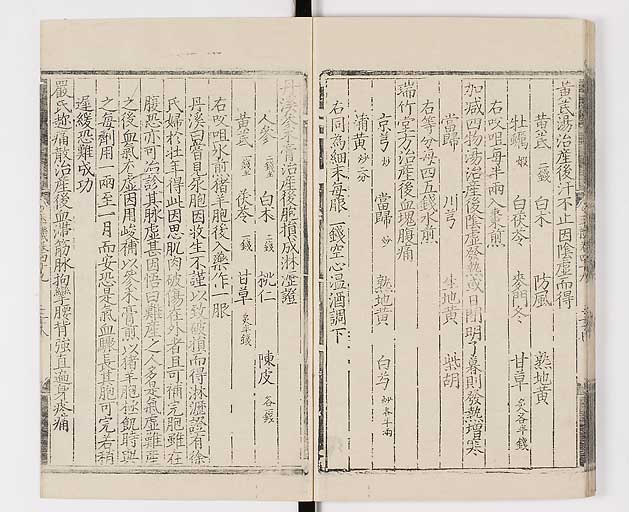 黃芪湯治産後汗不止因陰虛而得
黃芪 二錢 白朮 防風 熟地黃
牡蠣 煆 白茯苓 麥門冬 甘草 炙各半錢
右㕮咀每半兩入棗煎
加减四物湯治産後陰虛發熱或日間明了暮則發熱增寒
當歸 川芎 生地黃 柴胡
右等分每四五錢水煎
瑞竹堂方治産後血塊腹痛
京芎 炒 當歸 炒 熟地黃 白芍 炒各半兩
蒲黃 炒二分
右同爲細末每服一錢空心温酒調下
丹溪參朮膏治産後胞損成淋瀝證
人參 白朮 二錢 桃仁 陳皮 各一錢
黃芪 茯苓 一錢 甘草 炙半錢
右㕮咀水煎猪羊胞後入藥作一服
丹溪曰嘗見尿胞因收生不謹以致破損而得淋瀝證有徐
氏婦於壯年得此因思肌肉破傷在外者且可補完胞雖在
腹恐亦可治診其脉虛甚因悟曰難産之人多是氣虛難産
之後血氣尤虛因用峻補以參朮膏煎以猪羊胞極飢時與
之每劑用一兩至一月而安恐是氣血驟長其胞可完若稍
遲緩恐難成功
嚴氏趂痛散治産後血滯筋脉拘攣腰背強直遍身疼痛